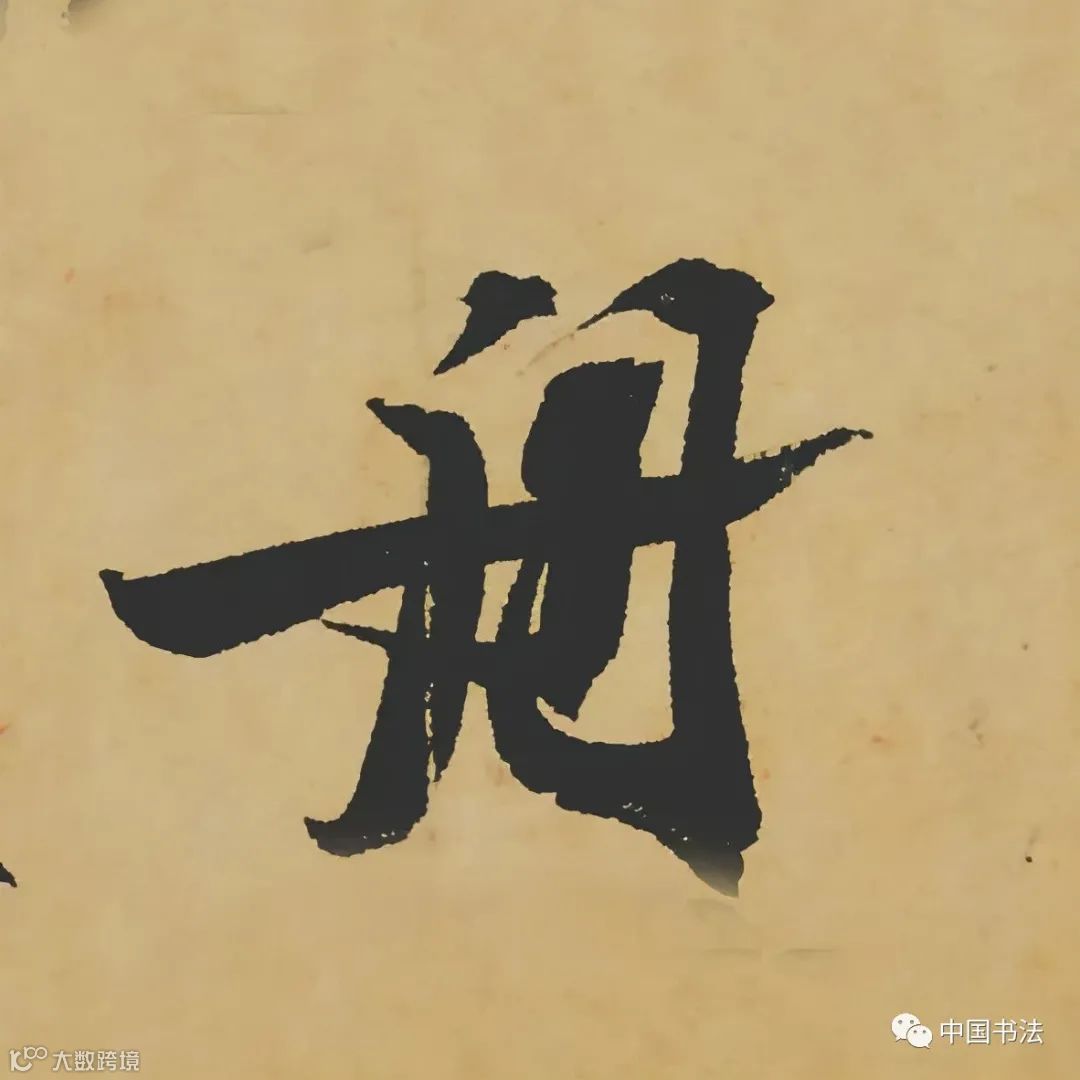 舟
中国书法
大数跨境